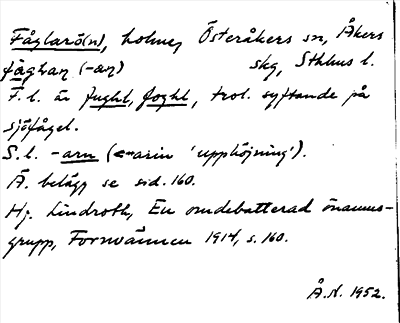 Fåglarö(n), holme, Österåkers sn, Åkers
skg, Sthlms l.
F. l. är fughl, foghl, trol. syftande på
sjöfågel.
S. l. -arn (<-arin 'upphöjning').
Ä. belägg se sid. 160.
Hj. Lindroth, En omdebatterad önamns-
grupp, Fornvännen 1914, s. 160.
Å. N. 1952.